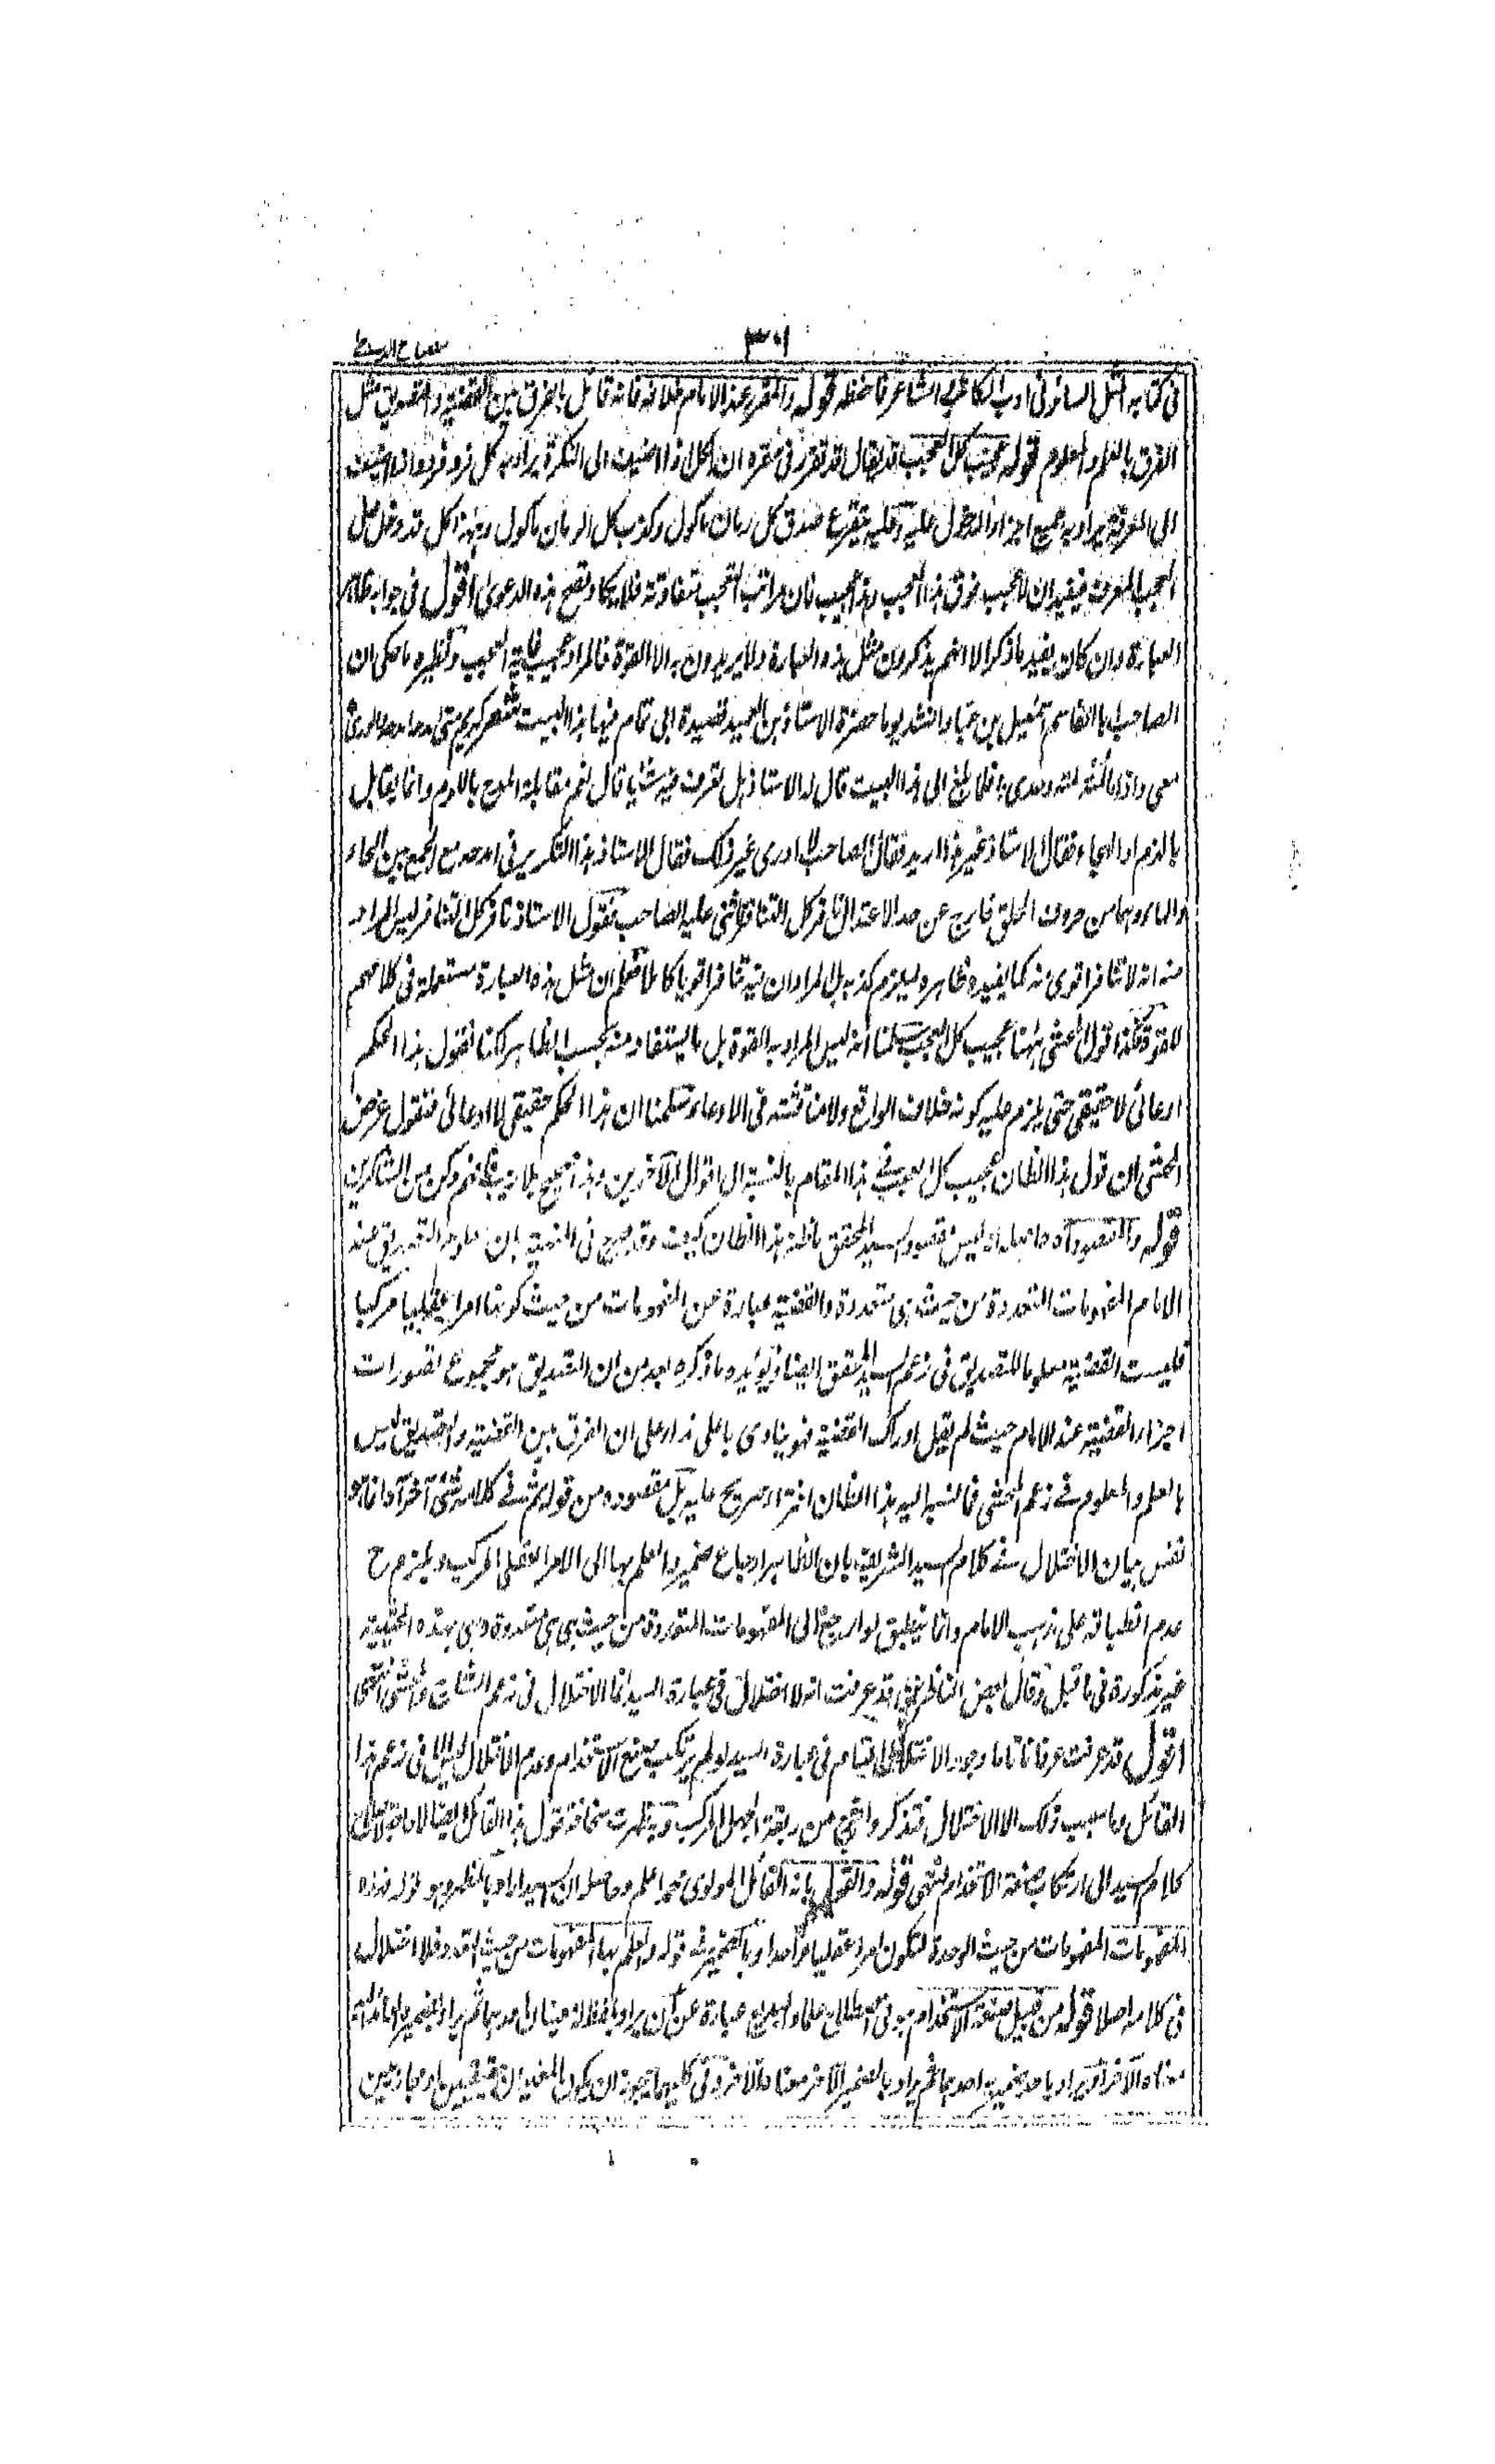 ٣٠١
مصباح الدجى
فى كتابه المثل السائر فى ادب الكاتب والشاعر فاحفظه قوله والمقرر عند الامام خلافه فانه قائل بالفرق بين القضية والتصديق مثل
الفرق بالعلم والمعلوم قوله عجيب كل العجب قد يقال قد تقرر فى مقره ان الكل اذا اضيف الى النكرة يراد به كل فرد فرد واذا اضيف
الى المعرفة يراد به جميع اجزاء المدخول عليه وعليه يتفرع صدق كل رمان ماكول وكذب كل الرمان ماكول وههنا كل قد دخل على
العجب المعرف فيفيد ان لا عجيب فوق هذا العجب وهذا عجيب فان مراتب العجب متفاوتة فلا يكاد تصح هذه الدعوى اقول فى جوابه ظاهر
العبارة وان كان يفيد ما ذكر الا انهم يذكرون مثل هذه العبارة ولا يريدون به الا القوة فالمراد عجيب غاية العجب ونظيره ما حكى ان
الصاحب ابا القاسم اسمعيل بن عباد انشد يوما حضرة الاستاذ بن العميد قصيدة ابى تمام فيها هذا البيت شعر كريم متى امدحه امدحه والورى
معى واذا ما لمته لمته وحدى ؛ فلما بلغ الى هذا البيت قال له الاستاذ هل تعرف فيه شيئا قال نعم مقابلة المدح باللوم وانما يقابل
بالذم او الهجاء فقال الاستاذ غير هذا اريد فقال الصاحب لا ادرى غير ذلك فقال الاستاذ هذا التكرير فى امدحه مع الجمع بين الحاء
والهاء وهما من حروف الحلق خارج عن حد الاعتدال نافر كل التنافر فاثنى عليه الصاحب فقول الاستاذ نافر كل التنافر ليس المراد
منه انه لا تنافر اقوى منه كما يفيده ظاهره ليلزم كذبه بل المراد ان فيه تنافرا قويا كاملا فعلم ان مثل هذه العبارة مستعملة فى كلامهم
للقوة فكذا قول المحشى ههنا عجيب كل العجب سلمنا انه ليس المراد به القوة بل ما يستفاد منه بحسب الظاهر لكنا نقول هذا الحكم
ادعائى لا حقيقى حتى يلزم عليه كونه خلاف الواقع ولا مناقشة فى الادعاء سلمنا ان هذا الحكم حقيقى لا ادعائى فنقول غرض
المحشى ان قول هذا الظان عجيب كل العجب فى هذا المقام بالنسبة الى اقوال الآخرين وهذا صحيح بلا ريب فافهم وكن من الشاكرين
قوله والمقصود اه حاصله انه ليس مقصود السيد المحقق ما ظنه هذا الظان كيف وقد صرح فى المنهية بان معلوم التصديق عند
الامام المفهومات المتعددة من حيث هى متعددة والقضية عبارة عن المفهومات من حيث كونها امرا عقليا مركبا
فليست القضية معلوما للتصديق فى زعم السيد المحقق ايضا ويؤيده ما ذكره بعد من ان التصديق هو مجموع تصورات
اجزاء القضية عند الامام حيث لم يقل ادراك القضية فهو ينادى باعلى نداء على ان الفرق بين القضية والتصديق ليس
بالعلم والمعلوم فى زعم المحشى فما نسبه اليه هذا الظان افتراء صريح عليه بل مقصوده من قوله ثم فى كلامه شئ آخر اه انما هو
نفس بيان الاختلال فى كلام السيد الشريف بان الظاهر ارجاع ضمير والعلم بها الى الامر العقلى المركب ويلزم ح
عدم انطباقه على مذهب الامام وانما ينطبق لو ارجع الى المفهومات المتعددة من حيث هى هى متعددة وهى بهذه الحيثية
غير مذكورة فى ما قبل وقال بعض الناظرين قد عرفت انه لا اختلال فى عبارة السيد انما الاختلال فى زعم الشارح والمحشى انتهى
اقول قد عرفت عرفانا تاما وجه الاختلال فى عبارة السيد لو لم يرتكب صنع الاستخدام وعدم الاختلال ليس الا فى زعم هذا
القائل وما سبب ذلك الا الاختلال فتذكر وانج من ربقة الجهل المركب وبه ظهرت سخافة قول هذا القائل ايضا لا حاجة لاصلاح
كلام السيد الى ارتكاب صنعة الاستخدام انتهى قوله والقول بانه القائل المولوى محمد اعلم وحاصله ان السيد اراد بالمظهر وهو قوله فهذه
المفهومات المفهومات من حيث الوحدة لتكون امرا عقليا واحدا وبالضمير فى قوله والعلم بها المفهومات من حيث التعدد فلا اختلال
فى كلامه اصلا قوله من قبيل صنعة الاستخدام هو فى اصطلاح علماء البديع عبارة عن ان يراد بلفظ له معنيان احدهما ثم يراد بالضمير الراجع اليه
معناه الآخر او يراد باحد ضميريه احدهما ثم يراد بالضمير الآخر معناه الآخر وفى كليهما يجوز ان يكون المعنيان حقيقيين او مجازيين